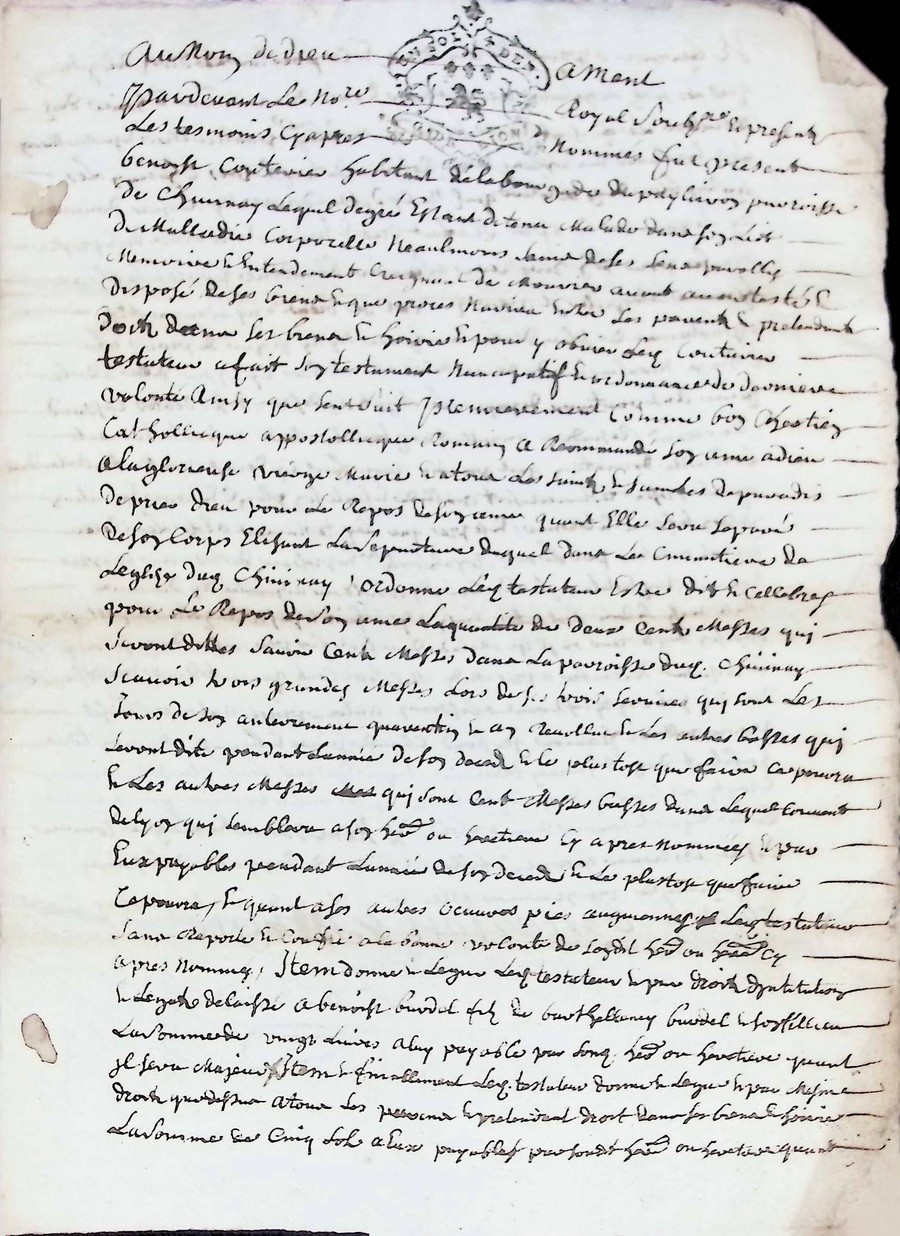 Au Nom de dieu amant
Pardevant Le No.re Royal soubz.ne Et present
Les tesmoins Cy apres Nommes fut present
benoist Couturier habitant de la bourgade du paroisse
De Chirinay Lequel de gré Estant detenu Malade dans son Lict
De Malladie Corporelle Neaulmoins saine de ses sens parolle
Memoire & Entendement Craignant de Mourir avant avoir testé &
Disposé de ses biens & que proces Narrive entre Les parents & pretendants
Droits dans ses biens & hoirie & pour y obvier Led. Couturier
testateur a fait son testament Nuncupatif & ordonnance de derniere
volonté Ainsy que sensuit premierement Comme bon Chrestien
Catholicque appostollicque Romain a Recommandé son ame a dieu
a la glorieuse vierge Marie & a tous Les saints & saintes de paradis
De prier dieu pour Le Repos de son ame quant Elle sera separé
De son Corps Elisant La sepulture duquel dans Le Cimmetiere de
Leglize dud. Chirinay, ordonne Led. testateur Estre dit & Cellebres
pour Le Repos de son ame La quantité de Deux Cents Messes qui
seront dittes savoir Cent Messes Dans La paroisse dud. Chirinay
scavoir trois grandes Messes Lors de ses trois services qui sont Les
Jours de son anterrement quarantin & an Revollu & Les autres basses qui
seront dits pendant Lannée de son deces & le plus tost que faire ce poura
& Les autres Messes qui sont Cent Messes basses dans Lequel Couvent
de Lyon qui semblera a son her. ou heretiere Cy apres Nommées & par
Eux payables pendant Lannée de son deces & Le plus tost que faire
Ce poura, & quant a ses autres oeuvres pies aumonnes Led. testateur
sans Raporte & Confie a la bonne volonté de sondit her. ou her. Cy
apres Nommes, Item donne & Legue Led. testateur & par droit dinstitution
& Legat delaisse a benoist burdel fils de barthellemy burdel son fillieu
La somme de vingt Livres a luy payable par sond. her. ou heretiere quant
Jl sera Majeur Item & finallement Led. testateur donne & Legue & par Mesme
droit que dessus a tous Les parans & pretendant droit dans ses biens & hoirie
La somme de Cinq sols a Eux payables par sondit her. ou heretiere quant